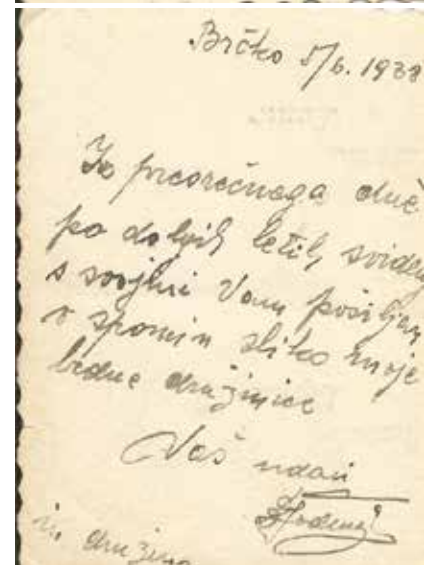 Brčko 5/6. 1938
Iz presrečnega dne
po dolgih letih, sviden
s svojimi Vam pošiljam
v spomin sliko moje
bedne družinice
Vaš udani
in družina